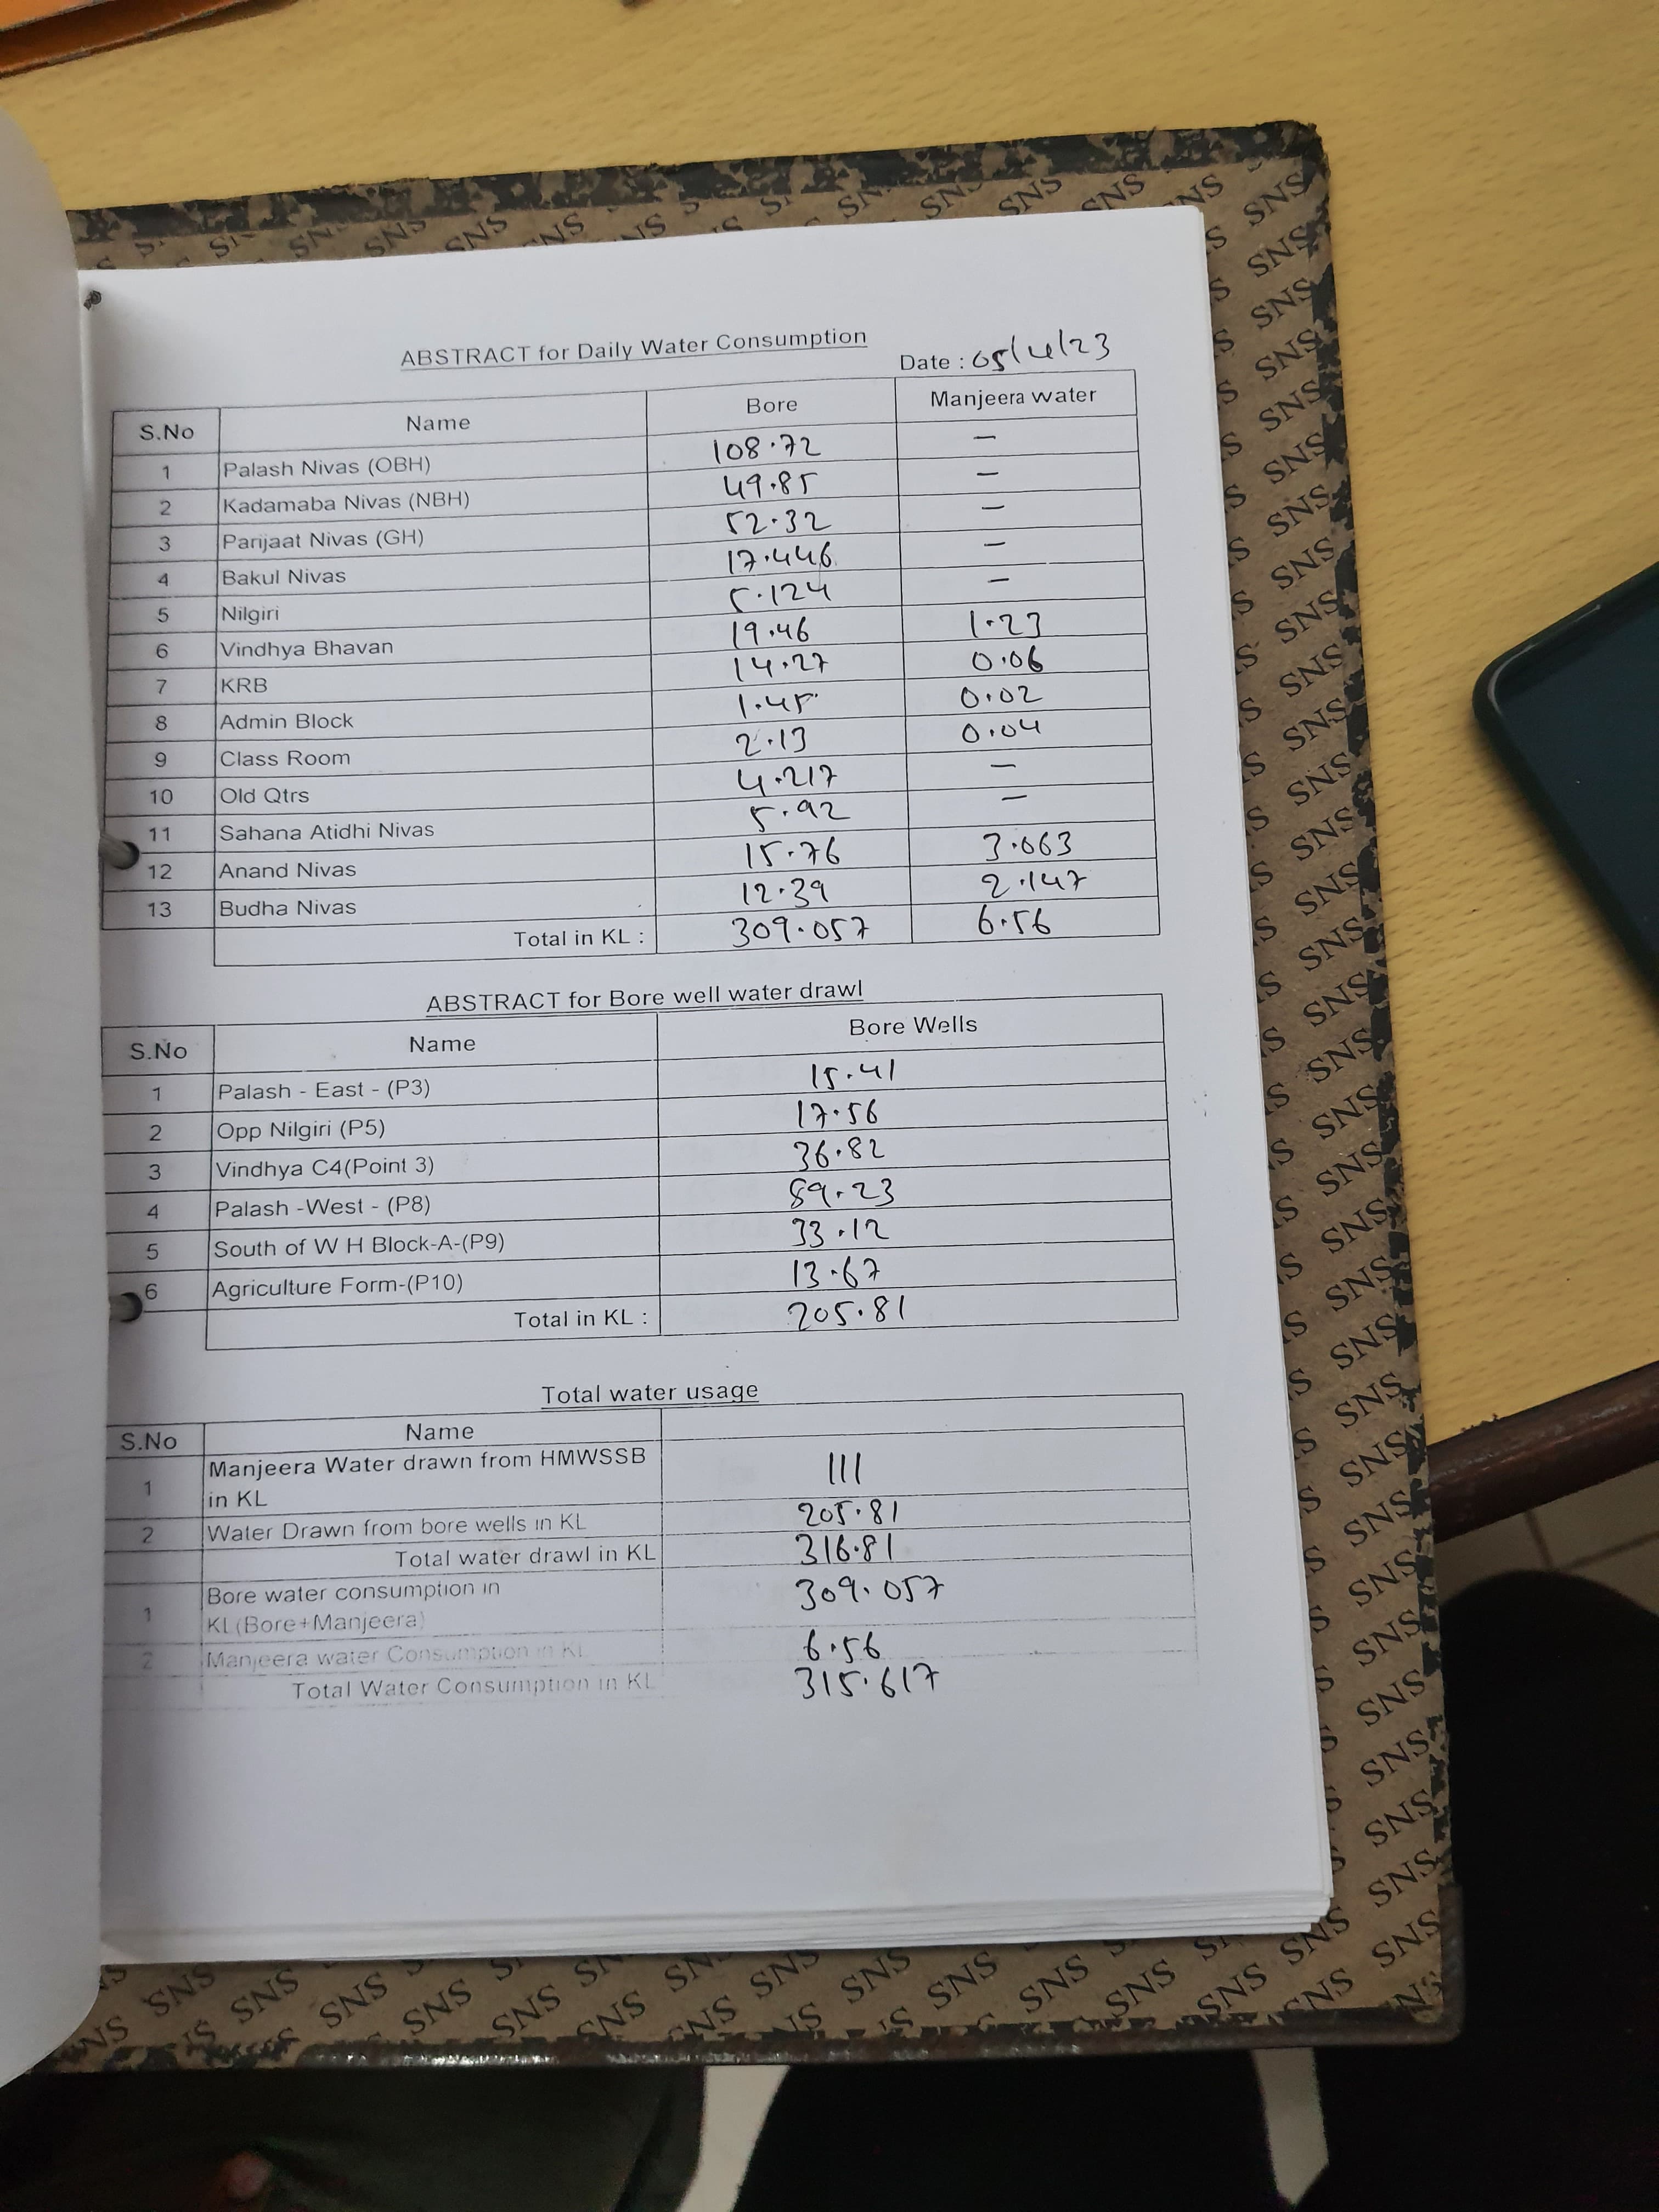 ABSTRACT for Daily Water Consumption
Date : 05/4/23
S.No Name Bore Manjeera water
1 Palash Nivas (OBH) 108.72 —
2 Kadamaba Nivas (NBH) 49.85 —
3 Parijaat Nivas (GH) 52.32 —
4 Bakul Nivas 17.446 —
5 Nilgiri 5.124 —
6 Vindhya Bhavan 19.46 1.23
7 KRB 14.27 0.06
8 Admin Block 1.45 0.02
9 Class Room 2.13 0.04
10 Old Qtrs 4.217 —
11 Sahana Atidhi Nivas 5.92 —
12 Anand Nivas 15.76 3.063
13 Budha Nivas 12.39 2.147
Total in KL : 309.057 6.56
ABSTRACT for Bore well water drawl
S.No Name Bore Wells
1 Palash - East - (P3) 15.41
2 Opp Nilgiri (P5) 17.56
3 Vindhya C4(Point 3) 36.82
4 Palash -West - (P8) 89.23
5 South of W H Block-A-(P9) 33.12
6 Agriculture Form-(P10) 13.67
Total in KL : 205.81
Total water usage
S.No Name
1 Manjeera Water drawn from HMWSSB in KL 111
2 Water Drawn from bore wells in KL 205.81
Total water drawl in KL 316.81
1 Bore water consumption in KL(Bore+Manjeera) 309.057
2 Manjeera water Consumption in KL 6.56
Total Water Consumption in KL 315.617
SNS